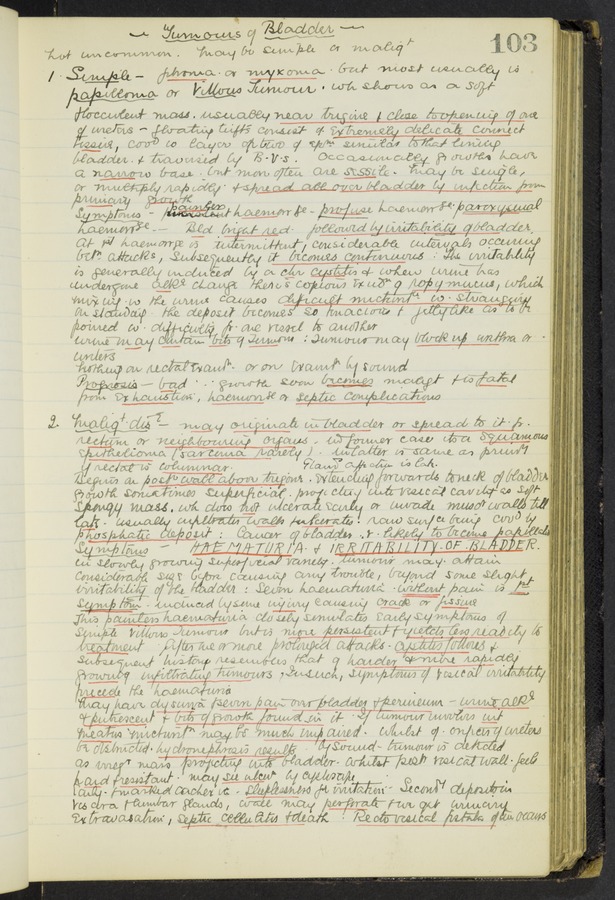 Tumours of Bladder
103
Not uncommon. May be simple or maligt
1. Simple - fibroma or myxoma. but most usually is
papilloma or Villous Tumour. wh shows as a soft
flocculent mass. usually near trigone & close to opening of one
of ureters - floating tufts consist of Extremely delicate connect
tissue, covd w layer of two of epm similar to that lining
bladder. & traversed by B.V.s. Occasionally growths have
a narrow base. but more often are sessile. May be single,
or multiply rapidly & spread all over bladder by infection from
primary growth
Symptoms - painless haemorrge - profuse haemorrge paroxysmal
haemorrge. - Bld bright red followed by irritability of bladder.
At 1st haemorrge is intermittent, considerable intervals occuring
betn attacks, Subsequently it becomes continuous. The irritability
is generally induced by a chr cystitis & when urine has
undergone alke change there is copious exudn of ropy mucus, which
mixing w the urine causes difficult micturitn w. strangury
On standing the deposit becomes so tenacious & jelly like as to be
poured w. difficulty fr one vessel to another
urine may contain bits of tumour: Tumour may block up urethra or
ureters
Nothing on rectal examn. or on examn by sound
Prognosis - bad ∵ growth soon becomes maligt & is fatal
from Exhaustion, haemorrge or septic complications
2. Maligt dise - may originate in bladder or spread to it fr.
rectum or neighbouring organs. in former case its a squamous
Epithelioma (sarcoma rarely). in latter is same as primy
if rectal is columnar. Gland affection is late.
Begins on postr wall above trigone. extending forwards to neck of bladder
growth sometimes superficial. projectg into vesical cavity as soft
spongy mass. wh does not ulcerate early or invade muscr walls till
late. usually infiltrates walls & ulcerates. raw surface being covd by
phosphatic deposit: Cancer of bladder. is likely to become papillated
Symptoms - HAEMATURIA & IRRITABILITY OF BLADDER.
in slowly growing superficial variety. tumour may attain
considerable size before causing any trouble, beyond some slight
irritability of the bladder: Severe haematuria without pain is 1st
symptom. induced by some injury causing crack or fissure
This painless haematuria closely simulates early symptoms of
Simple Villous Tumour but is more persistent & yields less readily to
treatment. After one or more prolonged attacks. cystitis follows &
subsequent history resembles that of harder & more rapidly
growing infiltrating tumours. In such, symptoms of vesical irritability
precede the haematuria
May have dysuria & severe pain over bladder & perineum - urine alke
& putrescent & bits of growth found in it. If tumour involves int
meatus micturitn may be much impaired. whilst if orifices of ureters
be obstructed. hydronephrosis results. By Sound. tumour is detected
as irregr mass projecting into bladder. whilst postr vesical wall. feels
hard & resistant. may see ulcer by cystoscope
Early & marked cachexia - sleeplessness fr irritation. Secondy deposits in
viscera & lumbar glands, wall may perforate & we get urinary
Extravasation, septic cellulitis & death: Recto vesical fistula often occurs